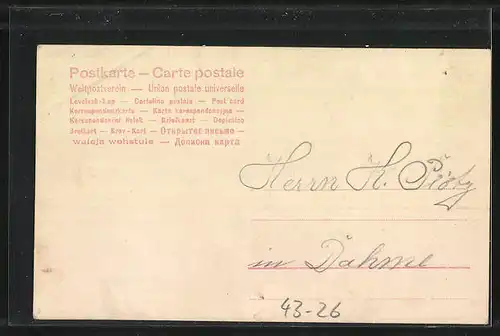 Postkarte — Carte postale
Weltpostverein — Union postale universelle
Levelezö-Lap — Cartolina postale — Post card
Korrespondenzkarte — Karta korespondencyjna —
Korespondenční lístek — Briefkaart — Dopisnica
Brefkort — Brev-Kort — Открытое письмо —
Дописна карта
Herrn H.
in Dahme
43-26